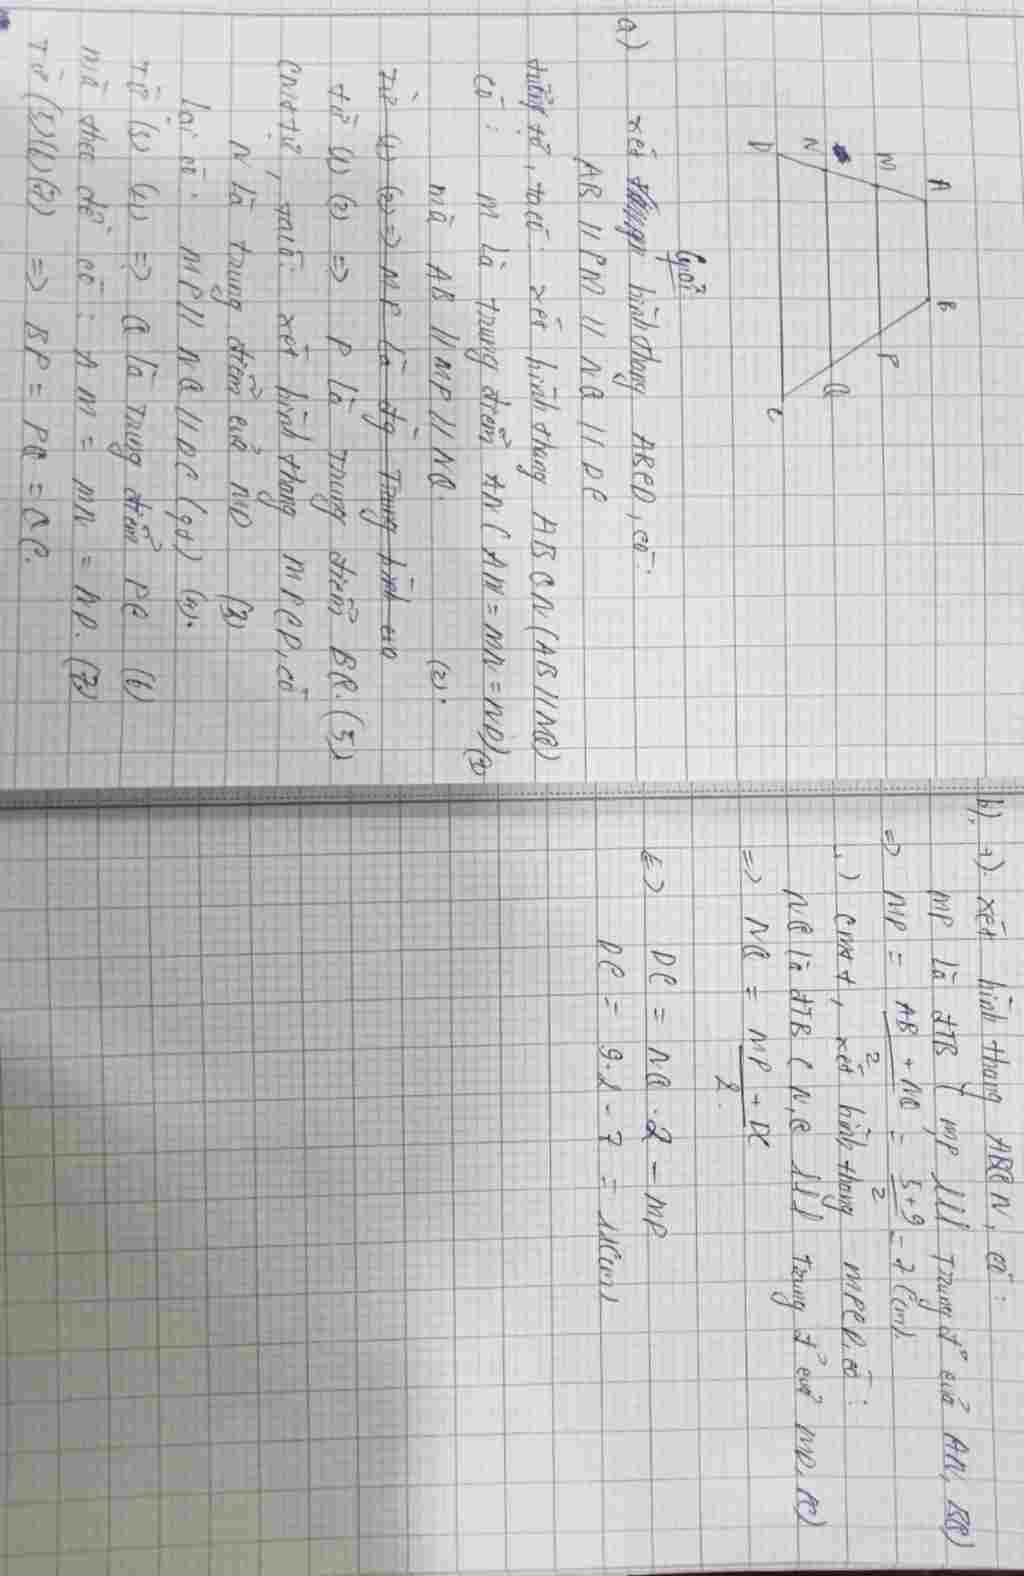 A B
M P
N Q
D C
Giải
a) xét hình thang ABCD, có:
AB // PM // NQ // DC
tương tự, ta có: xét hình thang ABQN (AB // NQ)
có: M là trung điểm AN (AM = MN = ND) (1)
mà AB // MP // NQ. (2).
Từ (1) (2) => MP là đg Trung bình của
từ (1) (2) => P là trung điểm BQ. (5)
cm t tự, ta có: xét hình thang MPCD, có
N là trung điểm của MD (3)
Lại có: MP // NQ // DC (gt) (4).
Từ (3) (4) => Q là Trung điểm PC (6)
mà theo đề có: AM = MN = ND. (7)
Từ (5)(6)(7) => BP = PQ = QC.
b), 1) xét hình thang ABQN, có:
MP là đTB (M,P lll Trung đ° của AN, BQ)
=> MP = AB + NQ / 2 = 5+9 / 2 = 7 (cm).
.) cmt t, xét hình thang MPCD, có:
NQ là đTB (N,Q lll Trung đ° của MD, PC)
=> NQ = MP + DC / 2.
(=) DC = NQ . 2 - MP
DC = 9.2 - 7 = 11(cm)